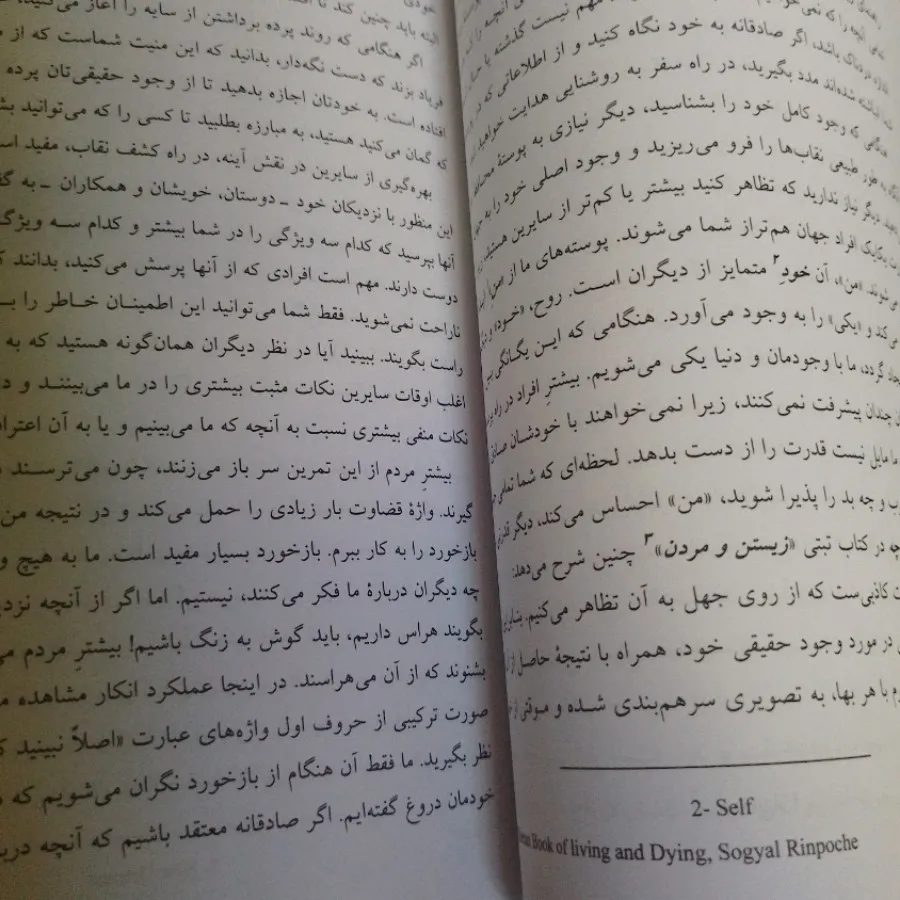 شده‌اند مدد بگیرید، در راه سفر به روشنایی هدایت خواهید
هنگامی که وجود کامل خود را بشناسید، دیگر نیازی به پوستهٔ
طور طبیعی نقاب‌ها را فرو می‌ریزید و وجود اصلی خود را به
دیگر نیاز ندارید که تظاهر کنید بیشتر یا کم‌تر از سایرین هستید،
یکایک افراد جهان هم‌تراز شما می‌شوند. پوسته‌های ما از «من»
می‌شوند. «من»، آن خودِ۲ متمایز از دیگران است. روح، «خود»
می‌کند و «یکی» را به وجود می‌آورد. هنگامی که این یگانگی
گردد، ما با وجودمان و دنیا یکی می‌شویم. بیشترِ افراد در راه
چندان پیشرفت نمی‌کنند، زیرا نمی‌خواهند با خودشان
ما مایل نیست قدرت را از دست بدهد. لحظه‌ای که شما تمامی
و چه بد را پذیرا شوید، «من» احساس می‌کند، دیگر
چه در کتاب تبتی «زیستن و مردن»۳ چنین شرح می‌دهد:
کاذبی‌ست که از روی جهل به آن تظاهر می‌کنیم.
در مورد وجود حقیقی خود، همراه با نتیجهٔ حاصل از
با هر بها، به تصویری سرهم‌بندی شده و موقتی از
2- Self
Book of living and Dying, Sogyal Rinpoche
البته باید چنین کند تا
اگر هنگامی که روند پرده برداشتن از سایه را آغاز می‌کنید،
فریاد بزند که دست نگه‌دار، بدانید که این منیت شماست که از
افتاده است. به خودتان اجازه بدهید تا از وجود حقیقی‌تان پرده
که گمان می‌کنید هستید، به مبارزه بطلبید تا کسی را که می‌توانید
بهره‌گیری از سایرین در نقش آینه، در راه کشف نقاب، مفید
این منظور با نزدیکان خود ـ دوستان، خویشان و همکاران ـ به
آنها بپرسید که کدام سه ویژگی را در شما بیشتر و کدام سه
دوست دارند. مهم است افرادی که از آنها پرسش می‌کنید، بدانند
ناراحت نمی‌شوید. فقط شما می‌توانید این اطمینان خاطر را
راست بگویند. ببینید آیا در نظر دیگران همان‌گونه هستید که به
اغلب اوقات سایرین نکات مثبت بیشتری را در ما می‌بینند و
نکات منفی بیشتری نسبت به آنچه که ما می‌بینیم و یا به آن
بیشترِ مردم از این تمرین سر باز می‌زنند، چون می‌ترسند
گیرند. واژهٔ قضاوت بار زیادی را حمل می‌کند و در نتیجه من
بازخورد را به کار ببرم. بازخورد بسیار مفید است. ما به هیچ
چه دیگران دربارهٔ ما فکر می‌کنند، نیستیم. اما اگر از آنچه
بگویند هراس داریم، باید گوش به زنگ باشیم! بیشترِ مردم
بشنوند که از آن می‌هراسند. در اینجا عملکرد انکار مشاهده
صورت ترکیبی از حروف اول واژه‌های عبارت «اصلاً نبینید
نظر بگیرید. ما فقط آن هنگام از بازخورد نگران می‌شویم که
خودمان دروغ گفته‌ایم. اگر صادقانه معتقد باشیم که آنچه